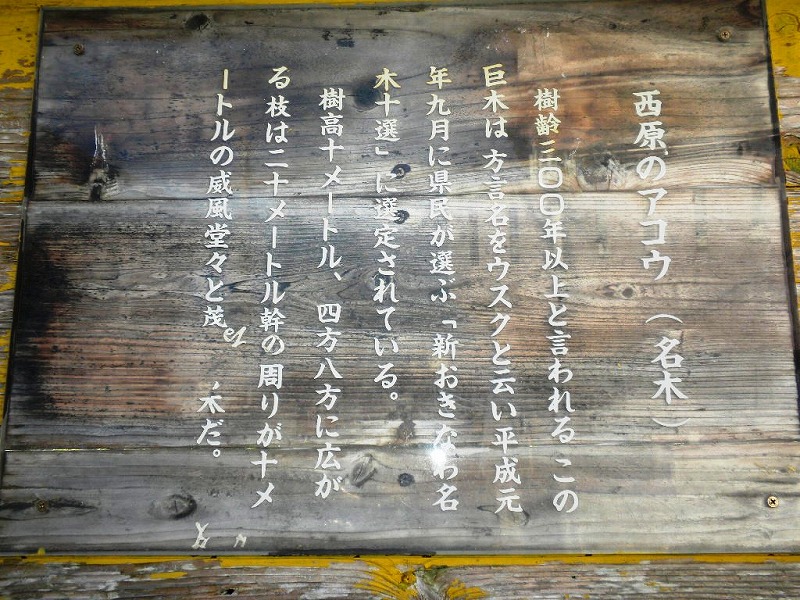 西原のアコウ（名木）
樹齢三〇〇年以上と言われるこの
巨木は方言名をウスクと云い平成元
年九月に県民が選ぶ「新おきなわ名
木十選」に選定されている。
樹高十メートル、四方八方に広が
る枝は二十メートル幹の周りが十メ
ートルの威風堂々と茂 木だ。